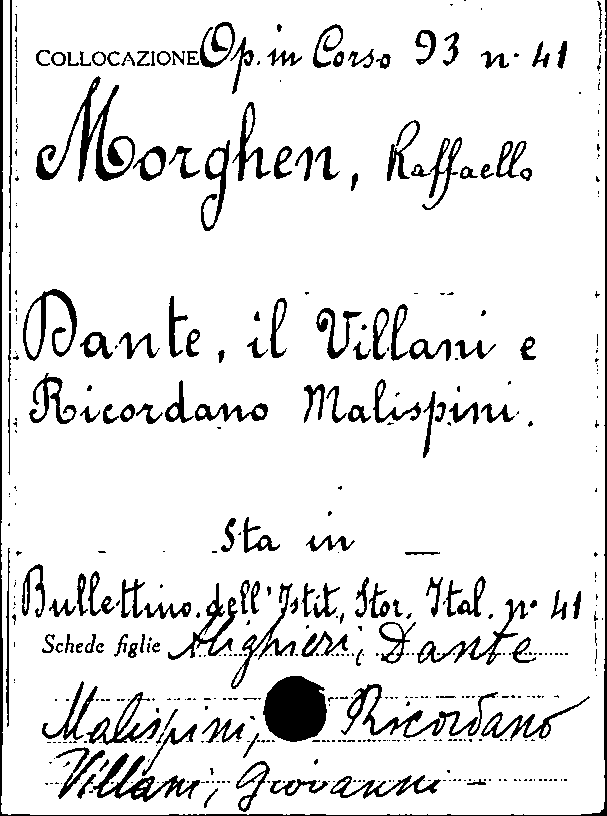 COLLOCAZIONE Op. in Corso 93 n. 41
Morghen, Raffaello
Dante, il Villani e
Ricordano Malispini.
Sta in —
Bullettino dell'Istit. Stor. Ital. n° 41
Schede figlie Alighieri, Dante
Malispini, Ricordano
Villani, Giovanni -